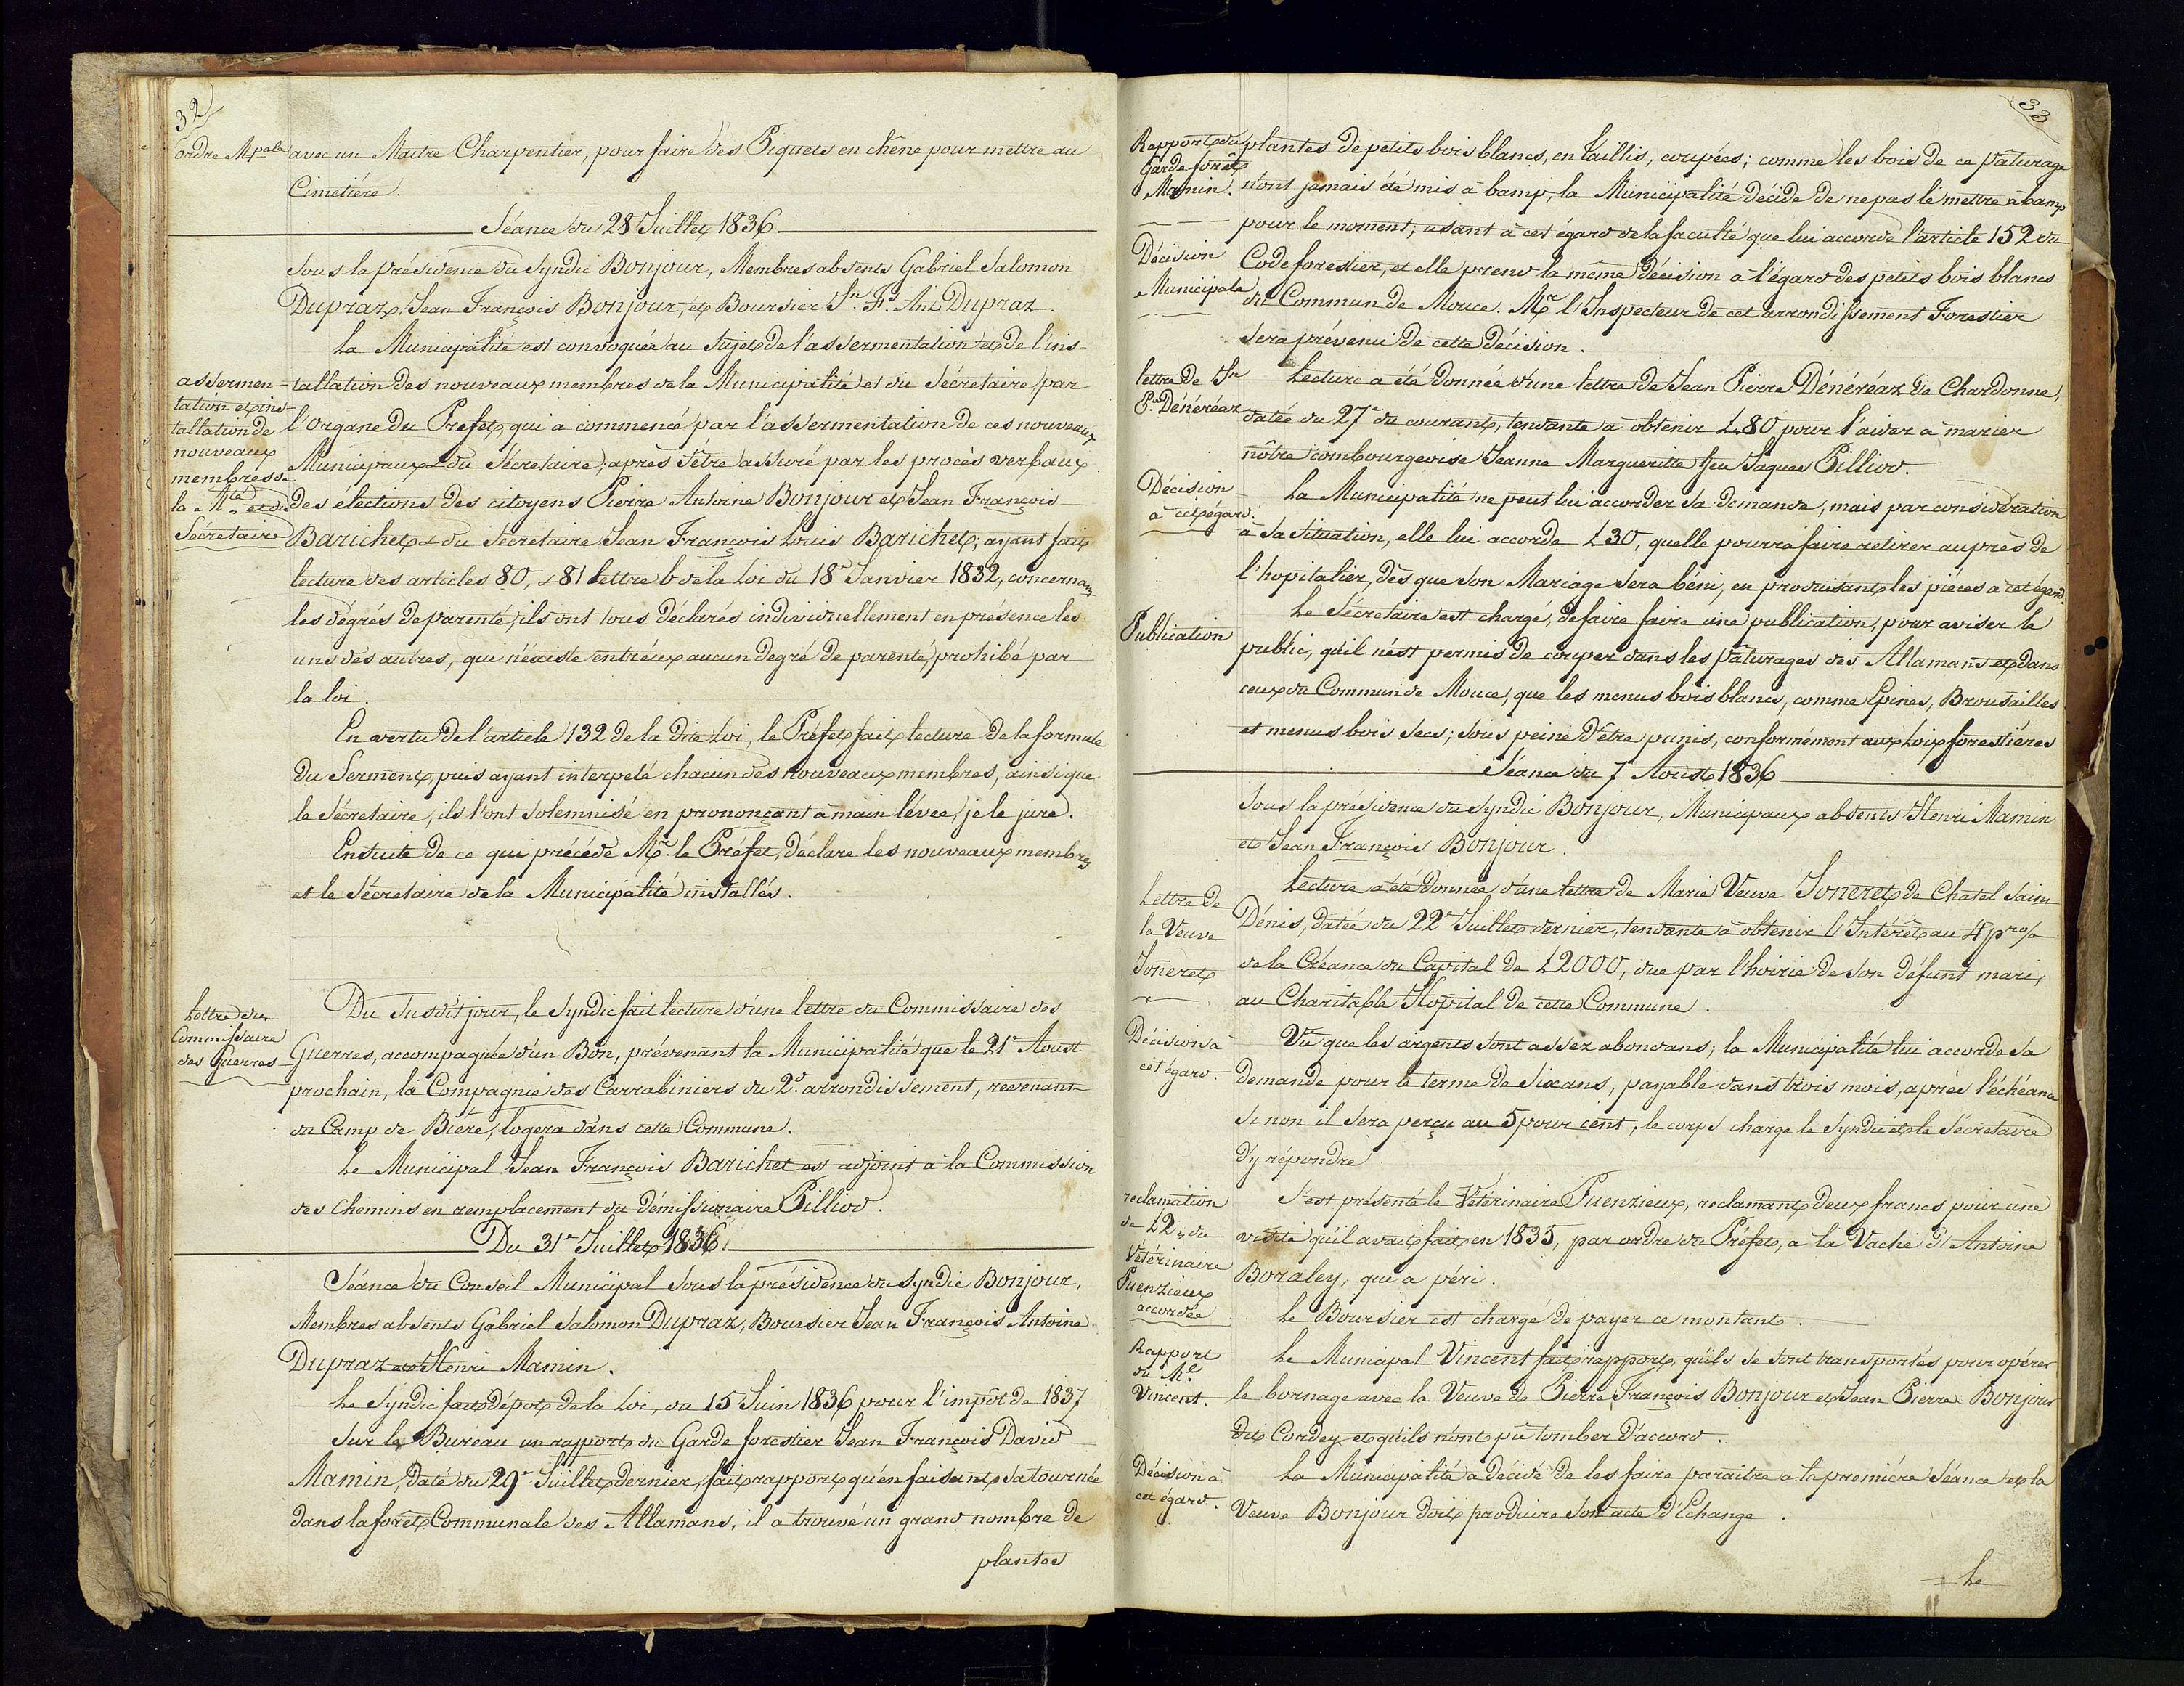 32
ordre Mpale
avec un Maitre Charpentier, pour faire des Piquets en chêne pour mettre au
Cimetiére.
Séance du 28 Juillet 1836
Sous la présidence du Syndic Bonjour, Membres absents Gabriel Salomon
Dupraz, Jean François Bonjour, et Boursier Jn. Fs. Ant Dupraz.
La Municipalité est convoquée au Sujet de l'assermentation et de l'ins-
assermen-
tation et ins-
tallation de
nouveaux
membres de
la Mté et du
Sécretaire
tallation des nouveaux membres de la Municipalité et du Sécretaire, par
l'organe du Prefet, qui a commencé par l'assermentation de ces nouveaux
Municipaux & du Sécretaire, après s'être assuré par les procès verbaux
des élections des citoyens Pierre Antoine Bonjour et Jean François
Barichet & du Sécretaire Jean François Louis Barichet; ayant fait
lecture des articles 80, & 81 lettre b de la Loi du 18e Janvier 1832, concernant
les dégrés de parenté, ils ont tous déclarés individuellement en présence les
uns des autres, que n'éxiste entr'eux aucun degré de parenté prohibé par
la loi.
En vertu de l'article 132 de la dite Loi, le Préfet fait lecture de la formule
du Serment, puis ayant interpelé chacun des nouveaux membres, ainsi que
le Sécretaire, ils l'ont solemnisé en prononçant à main lévée, je le jure.
Ensuite de ce qui précéde Mr. le Préfet, déclare les nouveaux membres
et le Sécretaire de la Municipalité installés.
Lettre du
Commissaire
des Guerres
Du Susdit jour, le Syndic fait lecture d'une lettre du Commissaire des
Guerres, accompagnée d'un Bon, prévenant la Municipalité que le 21e Aoust
prochain, la Compagnie des Carrabiniers du 2d. arrondissement, revenant
du Camp de Biére, logera dans cette Commune.
Le Municipal Jean François Barichet est adjoint à la Commission
des Chemins en remplacement du démissionaire Pilliod.
Du 31e Juillet 1836.
Séance du Conseil Municipal Sous la présidence du Syndic Bonjour,
Membres absents Gabriel Salomon Dupraz, Boursier Jean François Antoine
Dupraz et Henri Mamin.
Le Syndic fait dépot de la Loi, du 15 Juin 1836 pour l'impôt de 1837
Sur le Bureau un rapport du Garde forestier Jean François David
Mamin, daté du 29e Juillet dernier, fait rapport qu'en faisant sa tournée
dans la forêt Communale des Allamans, il a trouvé un grand nombre de
plantes
33
Rapport du
Garde forêt
Mamin.
plantes de petits bois blancs, en taillis, coupées; comme les bois de ce pâturage
n'ont jamais été mis à bamp, la Municipalité décide de ne pas le mettre à bamp
pour le moment; usant à cet égard de la faculté que lui accorde l'article 152 du
Décision
Municipale
Code forestier, et elle prend la même décision à l'égard des petits bois blancs
du Commun de Mouce. Mr l'Inspecteur de cet arrondissement Forestier
Sera prévenu de cette décision.
lettre de Jn
Pe. Dénéréaz
Lecture a été donnée d'une lettre de Jean Pierre Dénéréaz de Chardonne,
datée du 27e du courant, tendante à obtenir L 80 pour l'aider à marier
nôtre combourgeoise Jeanne Margueritte feu Jaques Pilliod.
Décision
à cet égard.
La Municipalité ne peut lui accorder sa demande, mais par considération
à sa situation, elle lui accorde L 30, quelle pourra faire retirer auprès de
l'hopitalier, dès que son Mariage sera béni, en produisant les pièces à cet égard.
Publication
Le Sécretaire est chargé, de faire faire une publication, pour aviser le
public, qu'il n'est permis de couper dans les pâturages des Allamans et dans
ceux du Commun de Mouce, que les menus bois blancs, comme Epines, Brousailles
et menus bois secs; sous peine d'être punis, conformément aux Loix forestières
Séance du 7 Aoust 1836
Sous la présidence du Syndic Bonjour, Municipaux absents Henri Mamin
et Jean François Bonjour.
Lettre de
la Veuve
Soneret
Lecture a été donnée d'une lettre de Marie Veuve Soneret de Chatel Saint
Dénis, datée du 22e Juillet dernier, tendante à obtenir l'Intérêt au 4 pr%
de la Créance du Capital de L 2000, due par l'hoirie de son défunt mari,
au Charitable Hopital de cette Commune.
Décision à
cet égard.
Vû que les argents sont assez abondans; la Municipalité lui accorde sa
demande pour le terme de Six ans, payable dans trois mois, après l'échéance
Si non il sera perçu au 5 pour cent, le corps charge le Syndic et le Sécretaire
d'y répondre
reclamation
de L 2 „ du
Vétérinaire
Puenzieux
accordée
S'est présenté le Vétérinaire Puenzieux, reclamant deux francs pour une
visite qu'il avait fait en 1835, par ordre du Préfet, à la Vache d'Antoine
Boraley, qui a péri.
Le Boursier est chargé de payer ce montant.
Rapport
du Ml.
Vincent.
Le Municipal Vincent fait rapport, qu'ils se sont transportés pour opérer
le bornage avec la Veuve de Pierre François Bonjour et Jean Pierre Bonjour
dit Cordey, et qu'ils n'ont pû tomber d'accord.
Décision à
cet égard.
La Municipalité a décidé de les faire paraitre à la première Séance et la
Veuve Bonjour doit produire son acte d'Echange.
Le